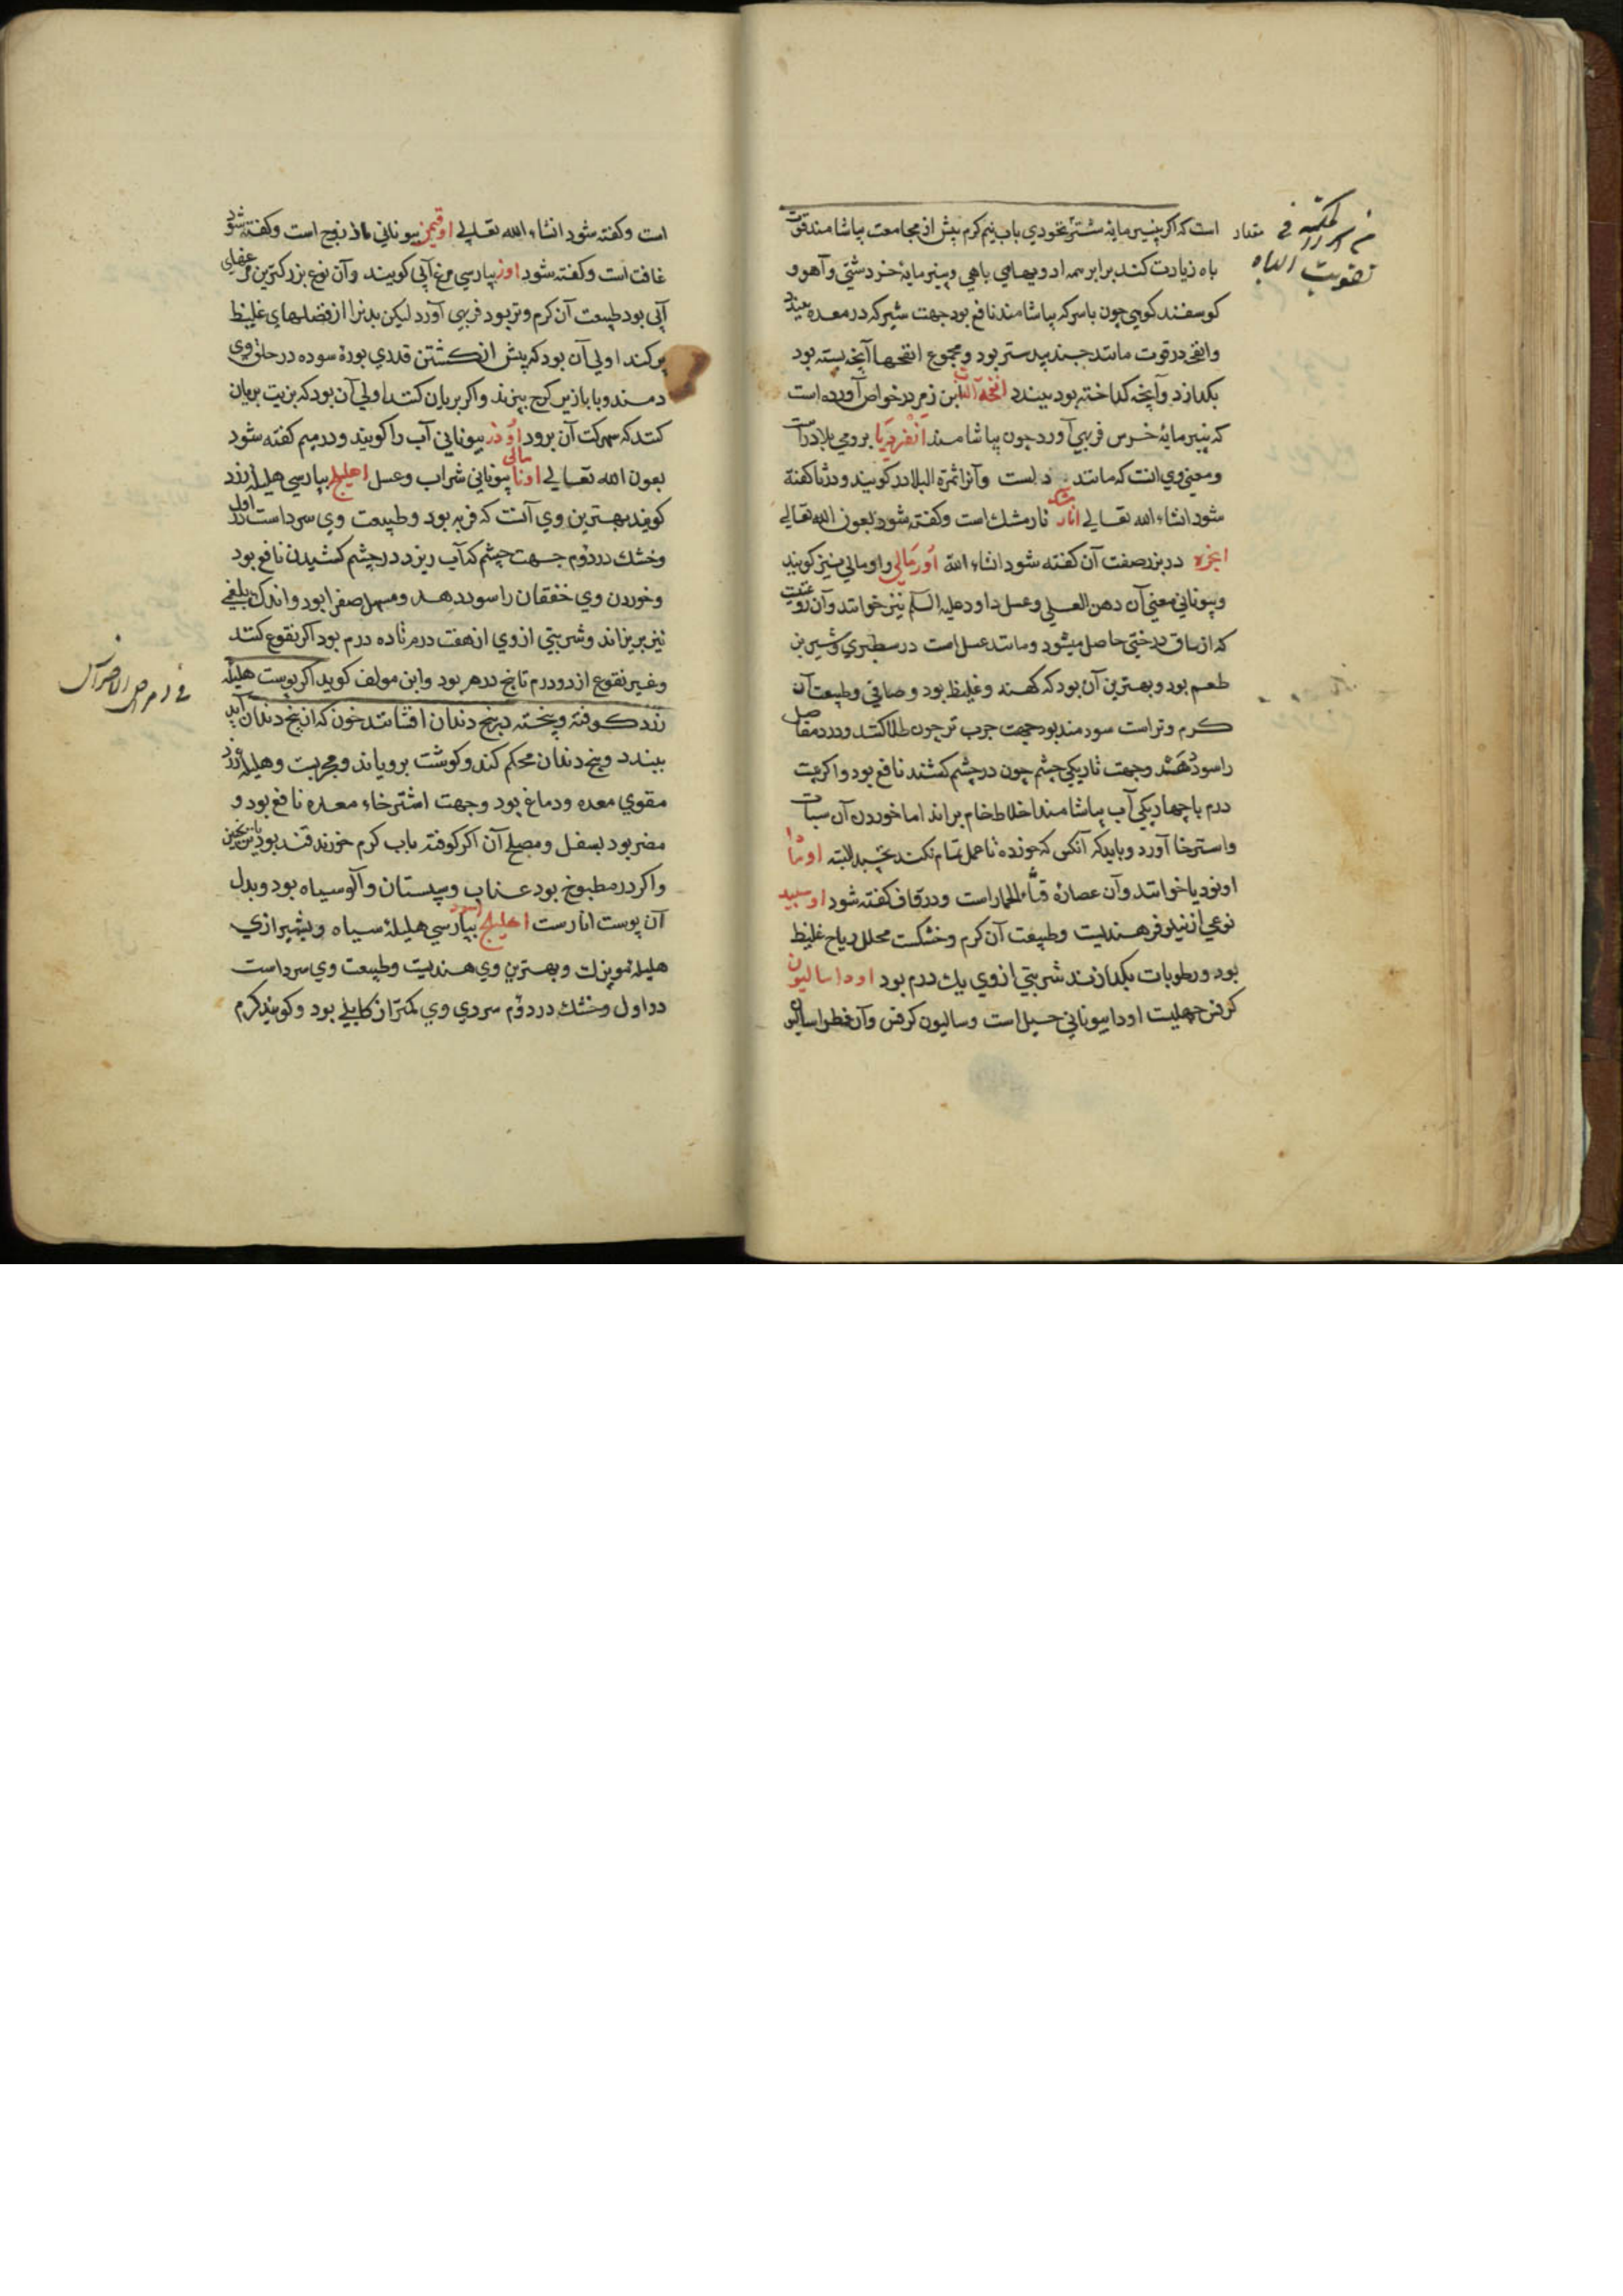 است که اکر پنیر مایهٔ شتر نخودی باب نیم کرم پیش از مجامعت بیاشامند قوت
باه زیادت کند برابر همه ادویهای باهی و پنیر مایهٔ خر دشتی و آهو و
کوسفند کوهی چون با سرکه بیاشامند نافع بود جهت شیر که در معده ببندد
وانفحه در قوت مانند جندبیدستر بود و مجموع انفحها آنچه بسته بود
بکدازد و آنچه کداخته بود ببندد انفحه الدب ابن زهر در خواص آورده است
که پنیر مایهٔ خرس فربهی آورد چون بیاشامند انقردیا برومی بلادراست
و معنی وی انست که مانند دلست و آنرا ثمرة البلادر کویند و در با کفته
شود انشاء الله تعالی انارمشک نارمشک است و کفته شود بعون الله تعالی
انجره در بزر صفت آن کفته شود انشاء الله اورمالی و اومالی نیز کویند
و بیونانی معنی آن دهن العسلی و عسل داود علیه السلم نیز خوانند و آن روغنیست
که از ساق درختی حاصل میشود و مانند عسل است در سطبری و شیرین
طعم بود و بهترین آن بود که کهنه و غلیظ بود و صافی و طبیعت آن
کرم و تر است سودمند بود جهت جرب تر چون طلا کنند و درد مفاصل
را سود دهد و جهت تاریکی چشم چون در چشم کشند نافع بود و اکر بیست
درم با چهار یکی آب بیاشامند اخلاط خام براند اما خوردن آن سبات
و استرخا آورد و باید که آنکس که خورده تا عمل تمام نکند نخسبد البته اونیا
اونودیا خوانند و آن عصارهٔ قثاء الحمار است و در قاف کفته شود اوسبید
نوعی از نیلوفر هندیست و طبیعت آن کرم و خشکست محلل ریاح غلیظ
بود و رطوبات بکدازند شربتی از وی یک درم بود اوداسالیون
کرفس جبلیست اودا بیونانی جبل است و سالیون کرفس و آن فطراسالیون
من اسرار المکتبه فی مقدار
تقویت الباه
است و کفته شود انشاء الله تعالی اوقیمن بیونانی باذروج است و کفته شود
غافت است و کفته شود اوز بپارسی مرغ آبی کویند و آن نوع بزرکترین مرغهای
آبی بود طبیعت آن کرم و تر بود فربهی آورد لیکن بدنرا از فضلهای غلیظ
پر کند اولی آن بود که پیش از کشتن قدری بورهٔ سوده در حلق وی
دمند و با بازیر کرم بپزند و اکر بریان کنند اولی آن بود که بزیت بریان
کنند که سهوکت آن برود اوذر بیونانی آب را کویند و در میم کفته شود
بعون الله تعالی اونامالی بیونانی شراب و عسل اهلیلج بپارسی هلیلهٔ زرد
کویند بهترین وی آنست که فربه بود و طبیعت وی سرد است در اول
و خشک در دوم جهت چشم که آب ریزد در چشم کشیدن نافع بود
و خوردن وی خفقان را سود دهد و مسهل صفرا بود و اندک بلغمی
نیز بریزاند و شربتی از وی از هفت درم تا ده درم بود اکر نقوع کنند
و غیر نقوع از دو درم تا پنج درهم بود و ابن مولف کوید اکر پوست هلیله
زرد کوفته و پخته در بیخ دندان افشانند خون که از بیخ دندان آید
ببندد و بیخ دندان محکم کند و کوشت برویاند و مجربست و هلیلهٔ زرد
مقوی معده و دماغ بود و جهت استرخاء معده نافع بود و
مضر بود بسفل و مصلح آن اکر کوفته باب کرم خورند قند بود یا ترنجبین
و اکر در مطبوخ بود عناب و سپستان و آلو سیاه بود و بدل
آن پوست انار است اهلیلج اسود بپارسی هلیلهٔ سیاه و بشیرازی
هلیله مویزک و بهترین وی هندیست و طبیعت وی سرد است
در اول و خشک در دوم سردی وی کمتر از کابلی بود و کویند کرم
فی امراض الاضراس